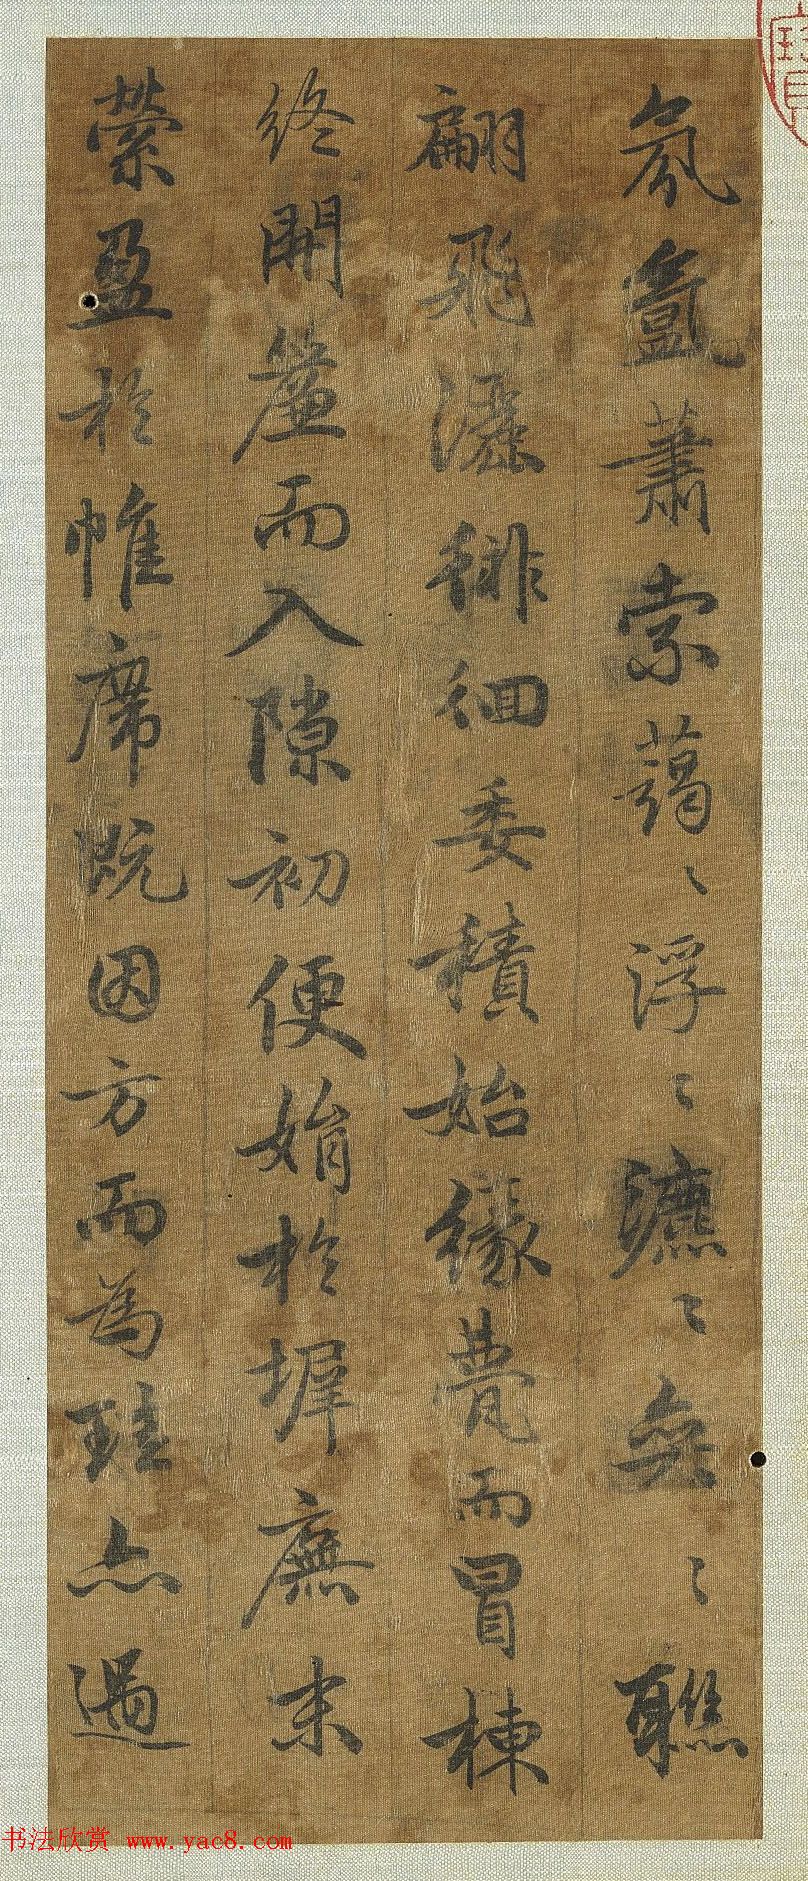 氛氳蕭索藹〻浮〻瀌〻奕〻聯
翩飛灑徘徊委積始緣甍而冒棟
終開簾而入隙初便娟於墀廡末
縈盈於帷席既因方而為珪亦遇
书法欣赏 www.yac8.com